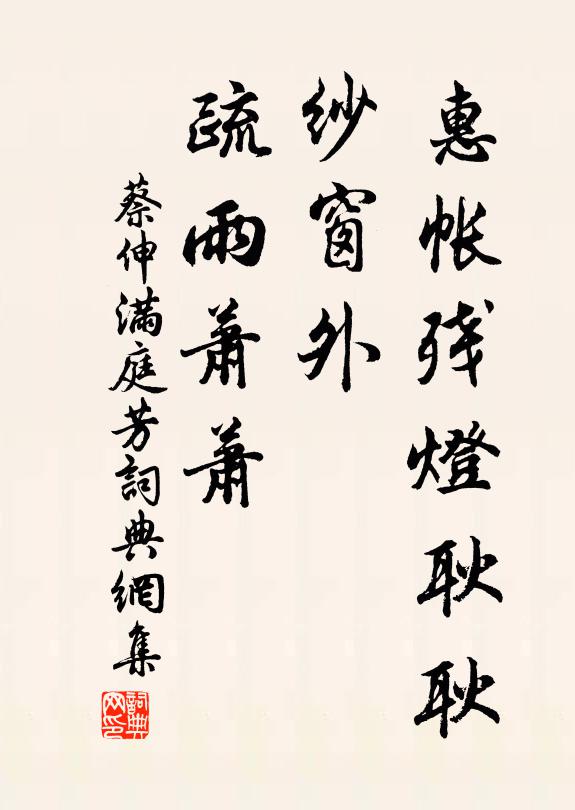 惠帐残燈耿耿
纱窗外
疏雨萧萧
蔡伸满庭芳詞典網集
詞典网印